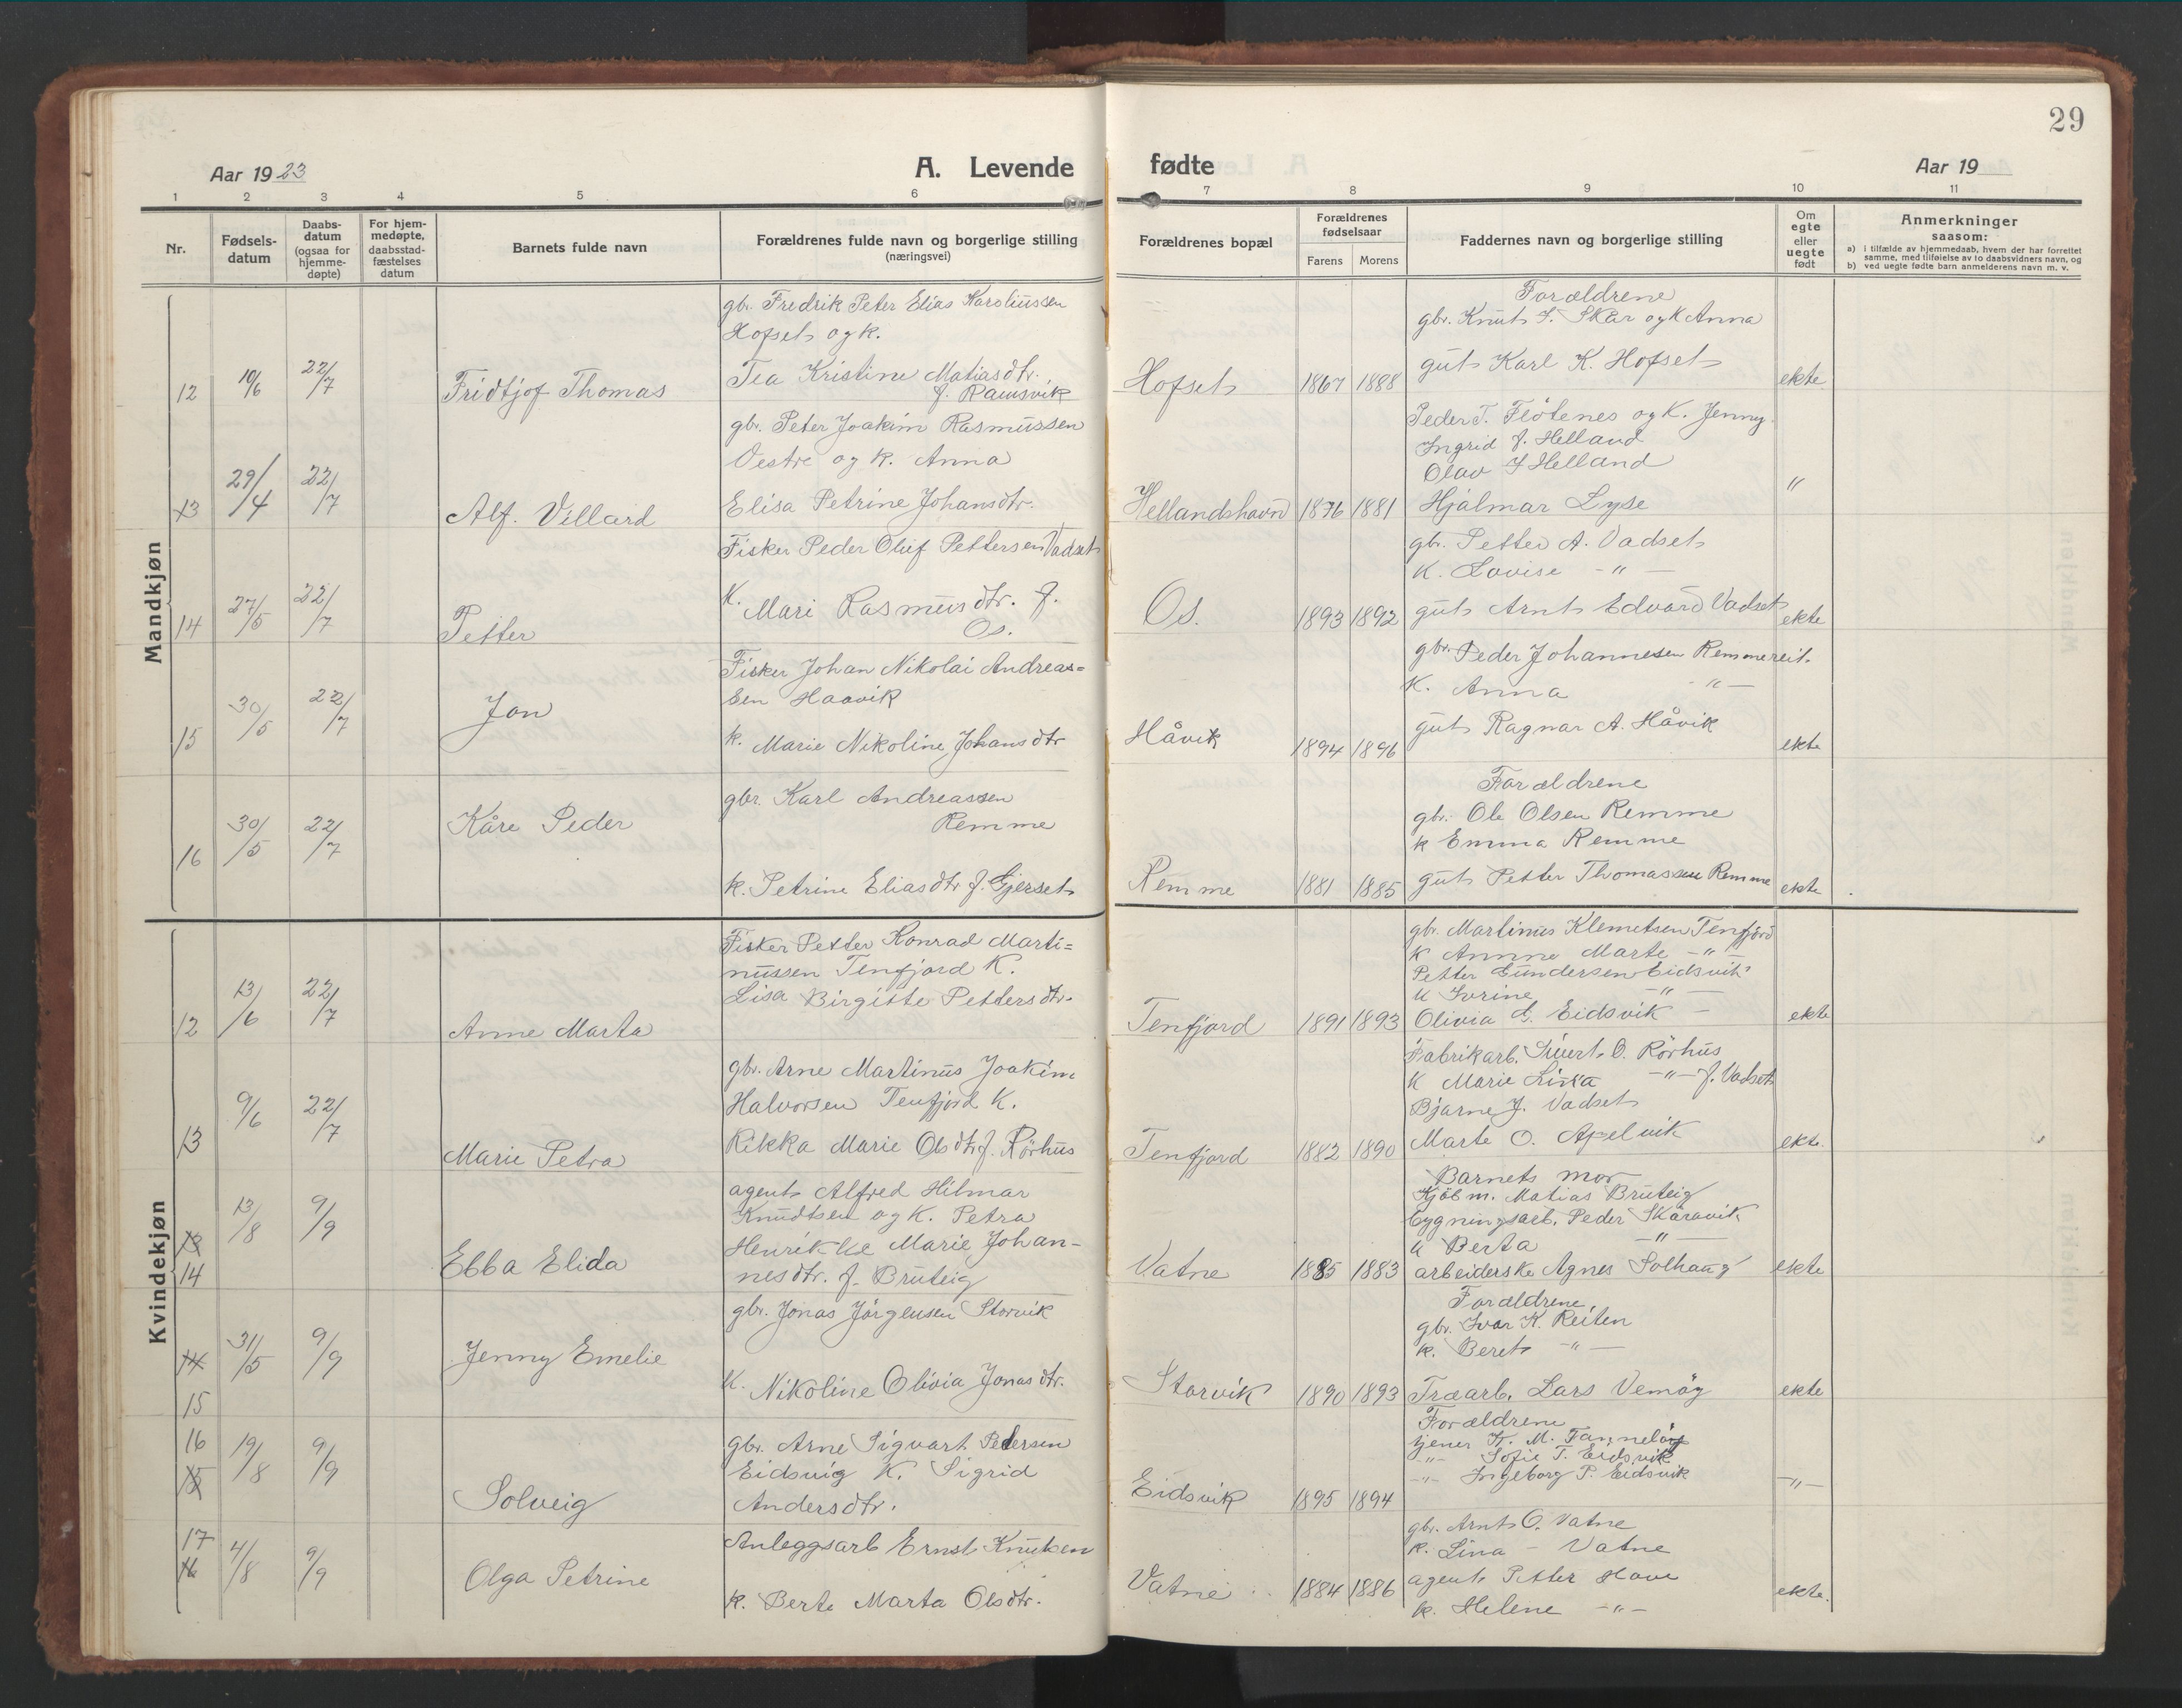 29
Aar 1923
A. Levende
fødte
Aar 19
1 2 3 4 5 6 7 8 9 10 11
Nr.
Fødsels-
datum
Daabs-
datum
(ogsaa for
hjemme-
døpte)
For hjem-
medøpte,
daabsstad-
fæstelses
datum
Barnets fulde navn
Forældrenes fulde navn og borgerlige stilling
(næringsvei)
Forældrenes bopæl
Forældrenes
fødselsaar
Farens
Morens
Faddernes navn og borgerlige stilling
Om
egte
eller
uegte
født
Anmerkninger
saasom:
a) i tilfælde av hjemmedaab, hvem der har forrettet
samme, med tilføielse av to daabsvidners navn, og
b) ved uegte fødte barn anmelderens navn m. v.
Mandkjøn
12 10/6 22/7 Fridtjof Thomas
gbr. Fredrik Peter Elias Karoliussen
Hofset og k.
Tea Kristine Matiasdtr.
f. Ramsvik
Hofset 1867 1888
Forældrene
gbr. Knut J. Skar og k Anna
gut Karl K. Hofset
ekte
13 29/4 22/7 Alf. Villard
gbr. Peter Joakim Rasmussen
Vestre og k. Anna
Elisa Petrine Johansdtr.
Hellandshavn 1876 1881
Peder T. Flötenes og K. Jenny
Ingrid J. Helland
Olav J Helland
Hjalmar Lyse
"
14 27/5 22/7 Petter
Fisker Peder Oluf Pettersen Vadset
K. Mari Rasmusdtr. f.
Os.
Os. 1893 1892
gbr. Petter A. Vadset
K. Lovise -"-
gut Arnt Edvard Vadset
ekte
15 30/5 22/7 Jon
Fisker Johan Nikolai Andreas=
sen Haavik
k. Marie Nikoline Johansdtr
Håvik 1894 1896
gbr. Peder Johannesen Remmereit.
K. Anna -"-
gut Ragnar A. Håvik
ekte
16 30/5 22/7 Kåre Peder
gbr. Karl Andreassen
Remme
k. Petrine Eliasdtr f. Gjerset
Remme 1881 1885
Forældrene
gbr. Ole Olsen Remme
k Emma Remme
gut Petter Thomassen Remme
ekte
Kvindekjøn
12 13/6 22/7 Anne Marta
Fisker Petter Konrad Marti=
nussen Tenfjord K.
Lisa Birgitte Pettersdtr.
Tenfjord 1891 1893
gbr. Martinus Klemetsen Tenfjord
K Annne Marte -"-
Petter Gundersen Eidsvik
K Ivrine -"-
Olivia G. Eidsvik -
ekte
13 9/6 22/7 Marie Petra
gbr. Arne Martinus Joakim
Halvorsen Tenfjord K.
Rikka Marie Olsdtr f. Rörhus
Tenfjord 1882 1890
Fabrikarb. Sivert O. Rörhus
K Marie -"- f. Vadset
Bjarne J. Vadset
Marte O. Apelvik
ekte.
13 14 13/8 9/9 Ebba Elida
agent Alfred Hilmar
Knudtsen og K. Petra
Henrikke Marie Johan-
nesdtr. f. Bruteig
Vatne 1885 1883
Barnets mor
Kjöbm. Matias Bruteig
bygningsarb. Peder Skaravik
K Berta -"-
arbeiderske Agnes Solhaug
ekte
14 15 31/5 9/9 Jenny Emelie
gbr. Jonas Jörgensen Storvik
K. Nikoline Olivia Jonasdtr.
Storvik 1890 1893
Forældrene,
gbr. Ivar K. Reiten
k. Beret -"-
Træarb. Lars Vemöy
ekte
16 15 19/8 9/9 Solveig
gbr. Arne Sigvart Pedersen
Eidsvig K. Sigrid
Andersdtr.
Eidsvik 1895 1894
Forældrene
tjener K. M.
-"- Sofie T. Eidsvik
-"- Ingeborg P. Eidsvik
-"-
17 16 4/8 9/9 Olga Petrine
Anleggsarb Ernst Knutsen
k. Berte Marta Olsdtr.
Vatne 1884 1886
gbr. Arnt O. Vatne
k. Lina - Vatne
agent Petter
k. Helene -"-
ekte.